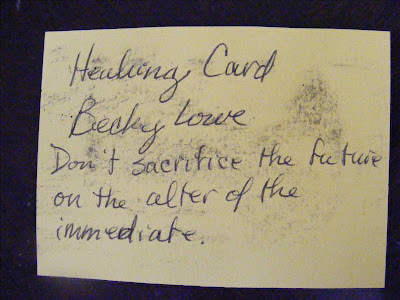 Healing Card
Becky Lowe
Don't sacrifice the future
on the alter of the
immediate.